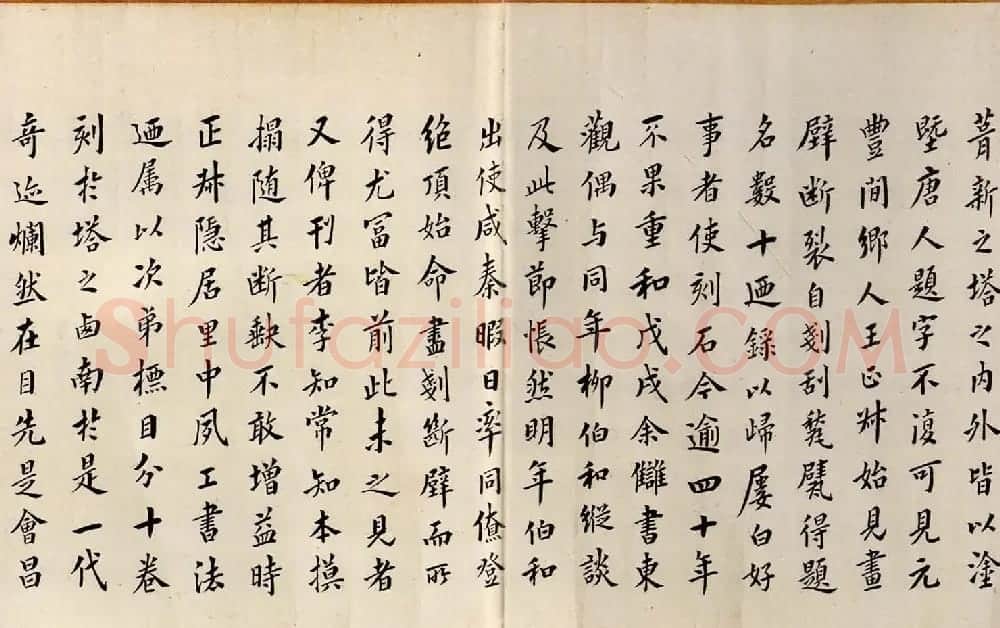 葺新之塔之内外皆以塗
墍唐人題字不復可見元
豐間鄉人王正叔始見畫
壁断裂自剗刮甃甓得題
名數十迺錄以歸屢白好
事者使刻石今逾四十年
不果重和戊戌余讎書東
觀偶与同年柳伯和縱談
及此擊節悵然明年伯和
出使咸秦暇日率同僚登
绝頂始命盡剗斷壁而所
得尤冨皆前此未之見者
又俾刊者李知常知本摸
搨随其断缺不敢增益時
正叔隐居里中夙工書法
迺属以次弟標目分十卷
刻於塔之西南於是一代
奇迹爛然在目先是會昌
Shufaziliao.COM